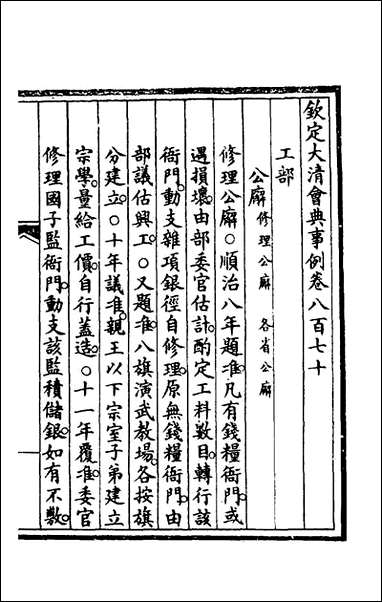 欽定大清會典事例卷八百七十
工部
公廨修理公廨 各省公廨
修理公廨○順治八年題准凡有錢糧衙門或
遇損壞由部委官估計酌定工料數目轉行該
衙門動支雜項銀徑自修理原無錢糧衙門由
部議估興工○又題准八旗演武教場各按旗
分建立○十年議准親王以下宗室子弟建立
宗學量給工價自行蓋造○十一年覆准委官
修理國子監衙門動支該監積儲銀如有不敷